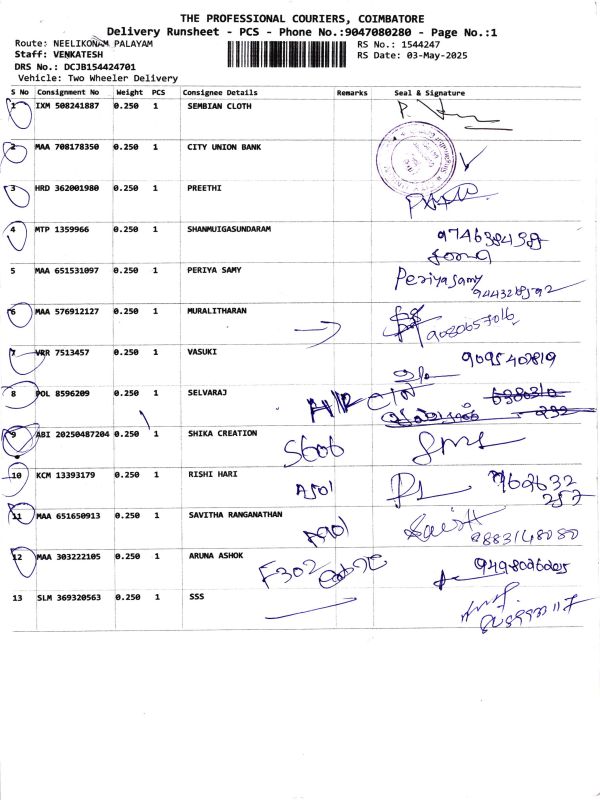 THE PROFESSIONAL COURIERS, COIMBATORE
Delivery Runsheet - PCS - Phone No.:9047080280 - Page No.:1
Route: NEELIKONAM PALAYAM RS No.: 1544247
Staff: VENKATESH RS Date: 03-May-2025
DRS No.: DCJB154424701
Vehicle: Two Wheeler Delivery
S No Consignment No Weight PCS Consignee Details Remarks Seal & Signature
1 IXM 508241887 0.250 1 SEMBIAN CLOTH
2 MAA 708178350 0.250 1 CITY UNION BANK
3 HRD 362001980 0.250 1 PREETHI
4 MTP 1359966 0.250 1 SHANMUIGASUNDARAM
5 MAA 651531097 0.250 1 PERIYA SAMY Periyasamy
6 MAA 576912127 0.250 1 MURALITHARAN
9080657016
7 VRR 7513457 0.250 1 VASUKI 9095402819
8 POL 8596209 0.250 1 SELVARAJ
9 ABI 20250487204 0.250 1 SHIKA CREATION S606
10 KCM 13393179 0.250 1 RISHI HARI A501
11 MAA 651650913 0.250 1 SAVITHA RANGANATHAN A901
9883148080
12 MAA 303222105 0.250 1 ARUNA ASHOK F302
13 SLM 369320563 0.250 1 SSS